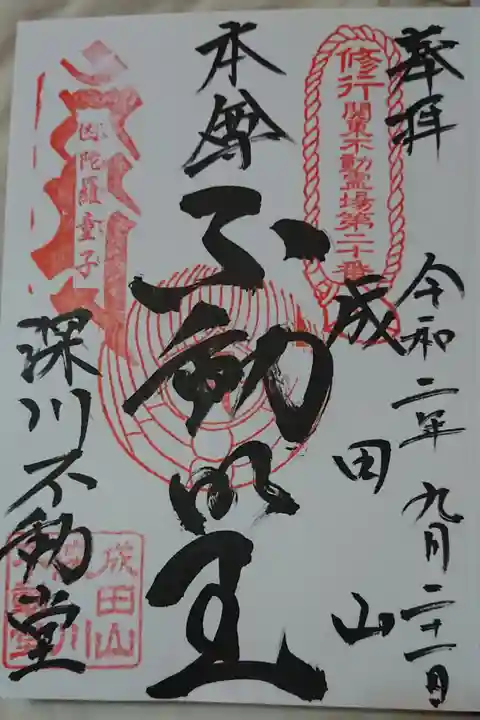 奉拝
令和二年九月二十一日
修行
関東不動霊場第二十番
成田山
本尊
不動明王
因陀羅童子
深川不動堂
成田山